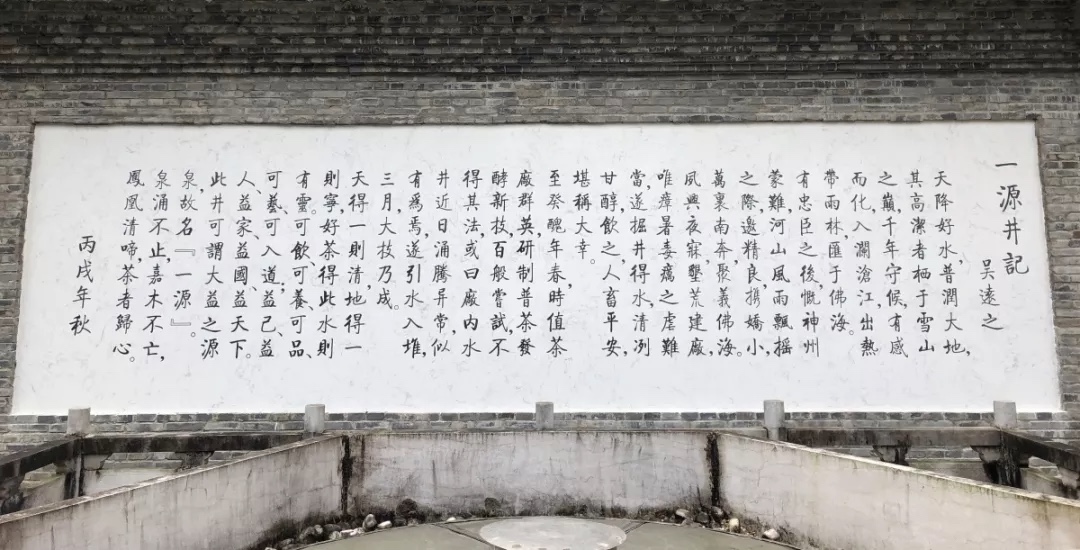 一源井記
吳遠之
天降好水，普潤大地，
其高潔者栖于雪山
之巔，千年守候，有感
而化，入瀾滄江，出熱
帶雨林，匯于佛海。
有忠臣之後，慨神州
蒙難，河山風雨飄摇
之際，邀精良，携嬌小，
萬裏南奔，聚義佛海。
夙興夜寐，墾荒建廠，
唯瘴暑毒癘之虐難
當，遂掘井得水，清洌
甘醇，飲之，人畜平安，
堪稱大幸。
至癸醜年春，時值茶
廠群英，研制普茶發
酵新技，百般嘗試，不
得其法，或曰廠内水
井近日涌騰异常，似
有爲焉，遂引水入堆，
三月，大技乃成。
天得一則清，地得一
則寧，好茶得此水則
有靈。可飲、可養、可品、
可藝、可入道，益己、益
人、益家、益國、益天下。
此井可謂大益之源
泉，故名『一源』。
泉涌不止，嘉木不亡，
鳳凰清啼，茶者歸心。
丙戌年秋